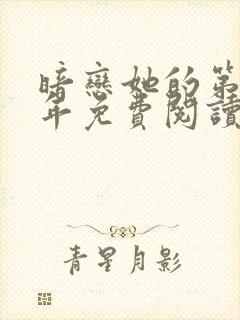 暗戀她的第
年免費閱讀
青星月影